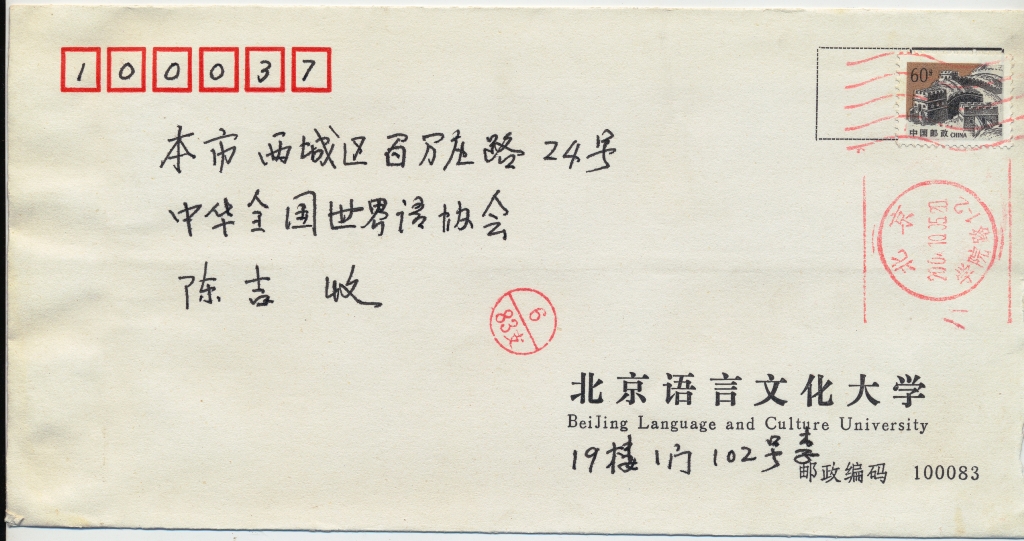 100037
60分
中国邮政 CHINA
本市西城区百万庄路24号
中华全国世界语协会
陈吉 收
北京
学院路1-2
6
83支
北京语言文化大学
BeiJing Language and Culture University
19楼1门102号李
邮政编码 100083